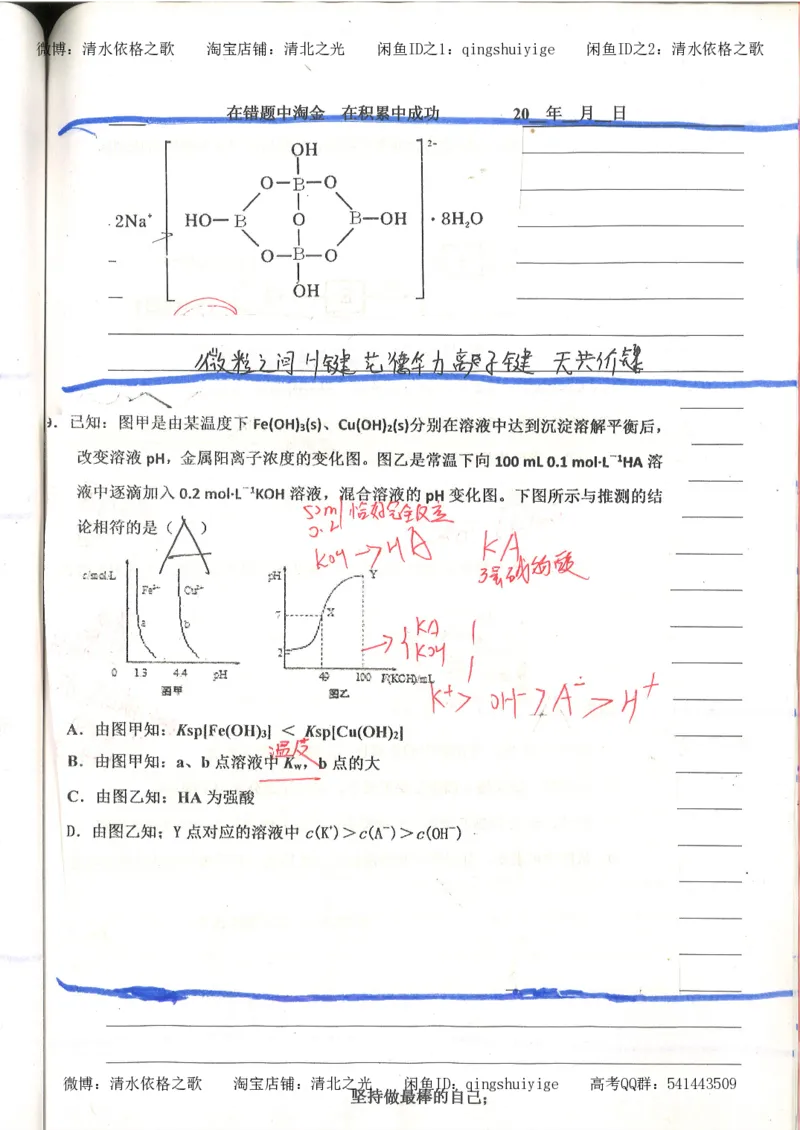 微博：清水依格之歌 淘宝店铺：清北之光 闲鱼ID之1：qingshuiyige 闲鱼ID之2：清水依格之歌
在错题中淘金 在积累中成功 20__年__月__日
OH
2-
O—B—O
2Na⁺ HO—B O B—OH ·8H₂O
O—B—O
OH
微粒之间 H键 范德华力 离子键 无共价键
9．已知：图甲是由某温度下 Fe(OH)₃(s)、Cu(OH)₂(s)分别在溶液中达到沉淀溶解平衡后，
改变溶液 pH，金属阳离子浓度的变化图。图乙是常温下向 100 mL 0.1 mol·L⁻¹HA 溶
液中逐滴加入 0.2 mol·L⁻¹KOH 溶液，混合溶液的 pH 变化图。下图所示与推测的结
论相符的是（ A ）
50ml 恰好完全反应
0.2
KOH → HA KA
强碱弱酸
c/mol·L Fe³⁺ Cu²⁺
a b
0 1.3 4.4 pH
图甲
pH Y
7 X
2
49 100 V(KOH)/mL
图乙
→{KA 1
KOH 1
K⁺> OH⁻>A⁻>H⁺
A．由图甲知：Ksp[Fe(OH)₃] ＜ Ksp[Cu(OH)₂]
温度
B．由图甲知：a、b 点溶液中 Kw，b 点的大
C．由图乙知：HA 为强酸
D．由图乙知；Y 点对应的溶液中 c(K⁺)＞c(A⁻)＞c(OH⁻)
微博：清水依格之歌 淘宝店铺：清北之光 闲鱼ID：qingshuiyige 高考QQ群：541443509
坚持做最棒的自己；